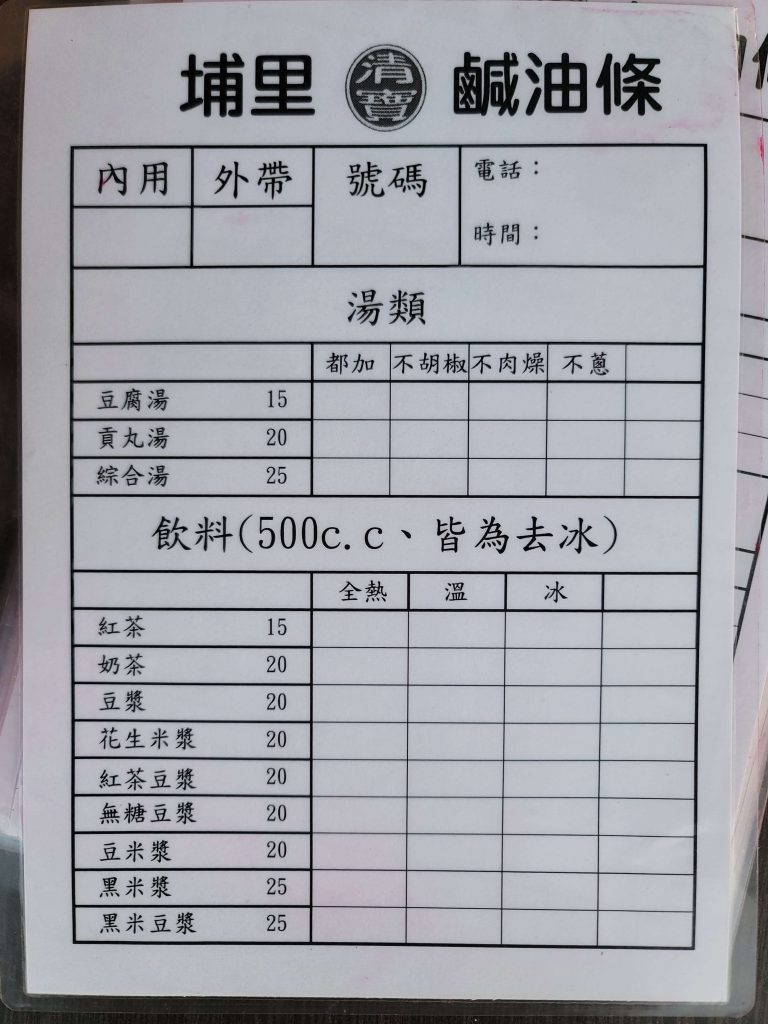 埔里 清寶 鹹油條
內用 外帶 號碼 電話：
時間：
湯類
都加 不胡椒 不肉燥 不蔥
豆腐湯 15
貢丸湯 20
綜合湯 25
飲料(500c.c、皆為去冰)
全熱 溫 冰
紅茶 15
奶茶 20
豆漿 20
花生米漿 20
紅茶豆漿 20
無糖豆漿 20
豆米漿 20
黑米漿 25
黑米豆漿 25